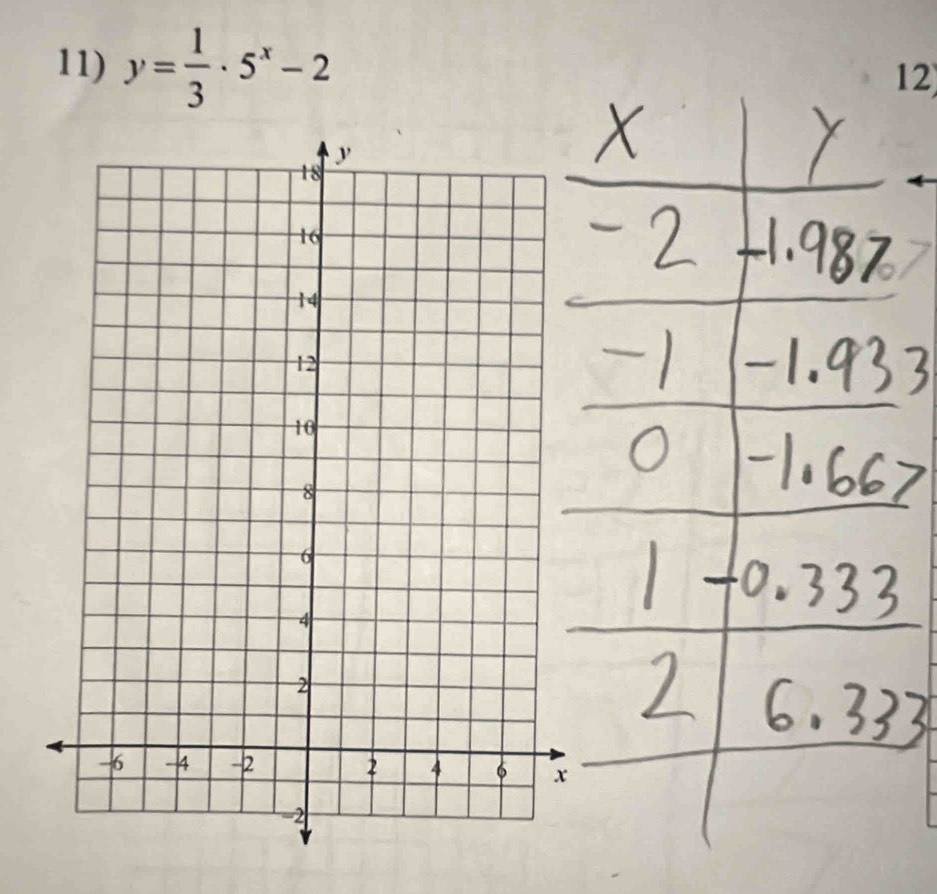 11) y = 1/3 · 5^x − 2
12)
x y
-2 -1.987
-1 -1.933
0 -1.667
1 -0.333
2 6.333
y
18
16
14
12
10
8
6
4
2
-6 -4 -2 2 4 6 x
-2